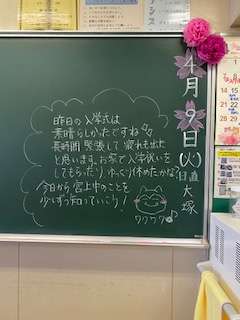 4月9日(火)
日直
大塚
昨日の入学式は
素晴らしかったですね
長時間緊張して疲れも出た
と思います。お家で入学祝いを
してもらったり ゆっくり休めたかな?
今日から宮上中のことを
少しずつ知っていこう!
ワクワク